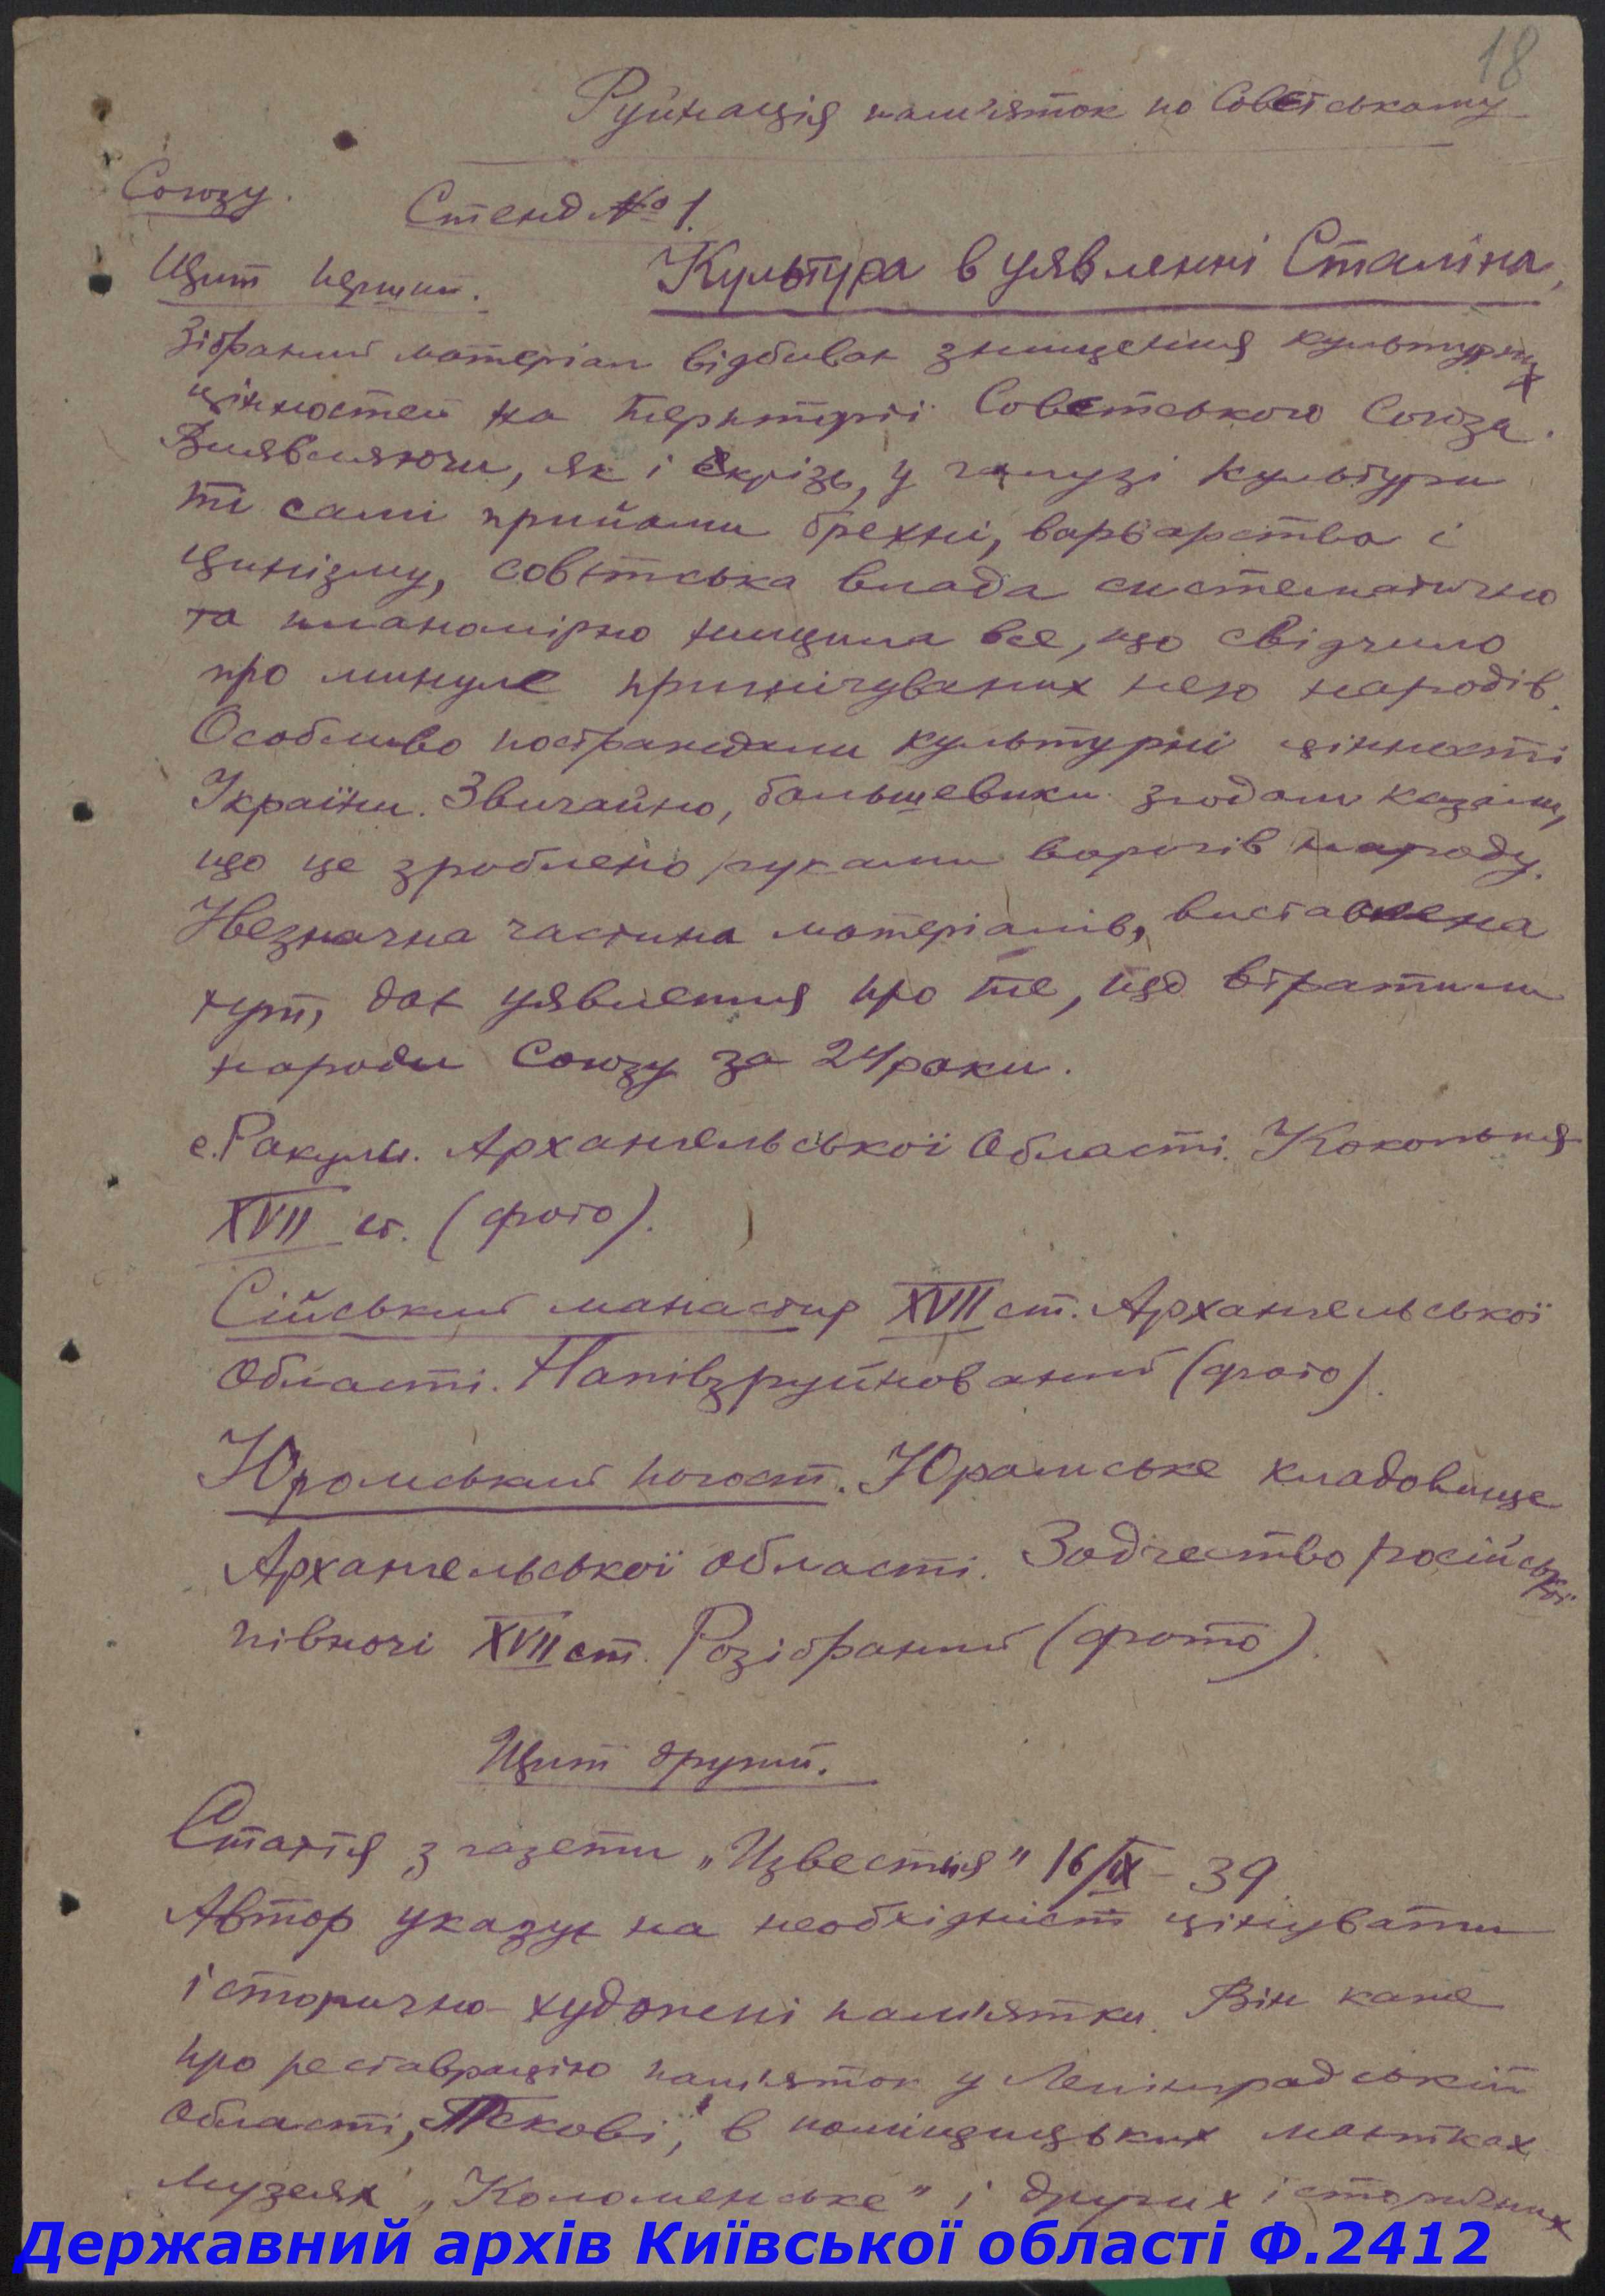 18
Руйнація пам'яток по Совєтському
Союзу.
Стенд № 1.
Щит перший.
Культура в уявленні Сталіна,
Зібраний матеріал відбиває знищення культурних
цінностей на території Совєтського Союза.
Виявляючи, як і скрізь, у галузі культури
ті самі прийоми брехні, варварства і
цинізму, совєтська влада систематично
та планомірно нищила все, що свідчило
про минуле пригнічуваних нею народів.
Особливо постраждали культурні цінності
України. Звичайно, большевики згодом казали,
що це зроблено руками ворогів народу.
Незначна частина матеріалів, виставлена
тут, дає уявлення про те, що втратили
народи Союзу за 24 роки.
с. Ракули. Архангельської Области.
XVII ст. (фото).
Сійський манастир XVII ст. Архангельської
Области. Напівзруйнований (фото).
Юромський погост. Юромське кладовище
Архангельської области. Зодчество російської
півночі XVII ст. Розібраний (фото).
Щит другий.
Стаття з газети „Известия" 16/IX - 39
Автор указує на необхідність цінувати
історично-художні пам'ятки. Він каже
про реставрацію пам'яток у Ленінградській
Области, Пскові, в поміщицьких маєтках
музеях „Коломенське" і других історичних
Державний архів Київської області Ф.2412